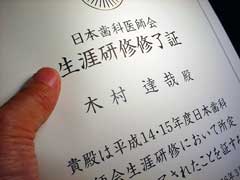 日本歯科医師会
生涯研修修了証
木村達哉殿
貴殿は平成14·15年度日本歯科
師会生涯研修において所定
されたことを証する